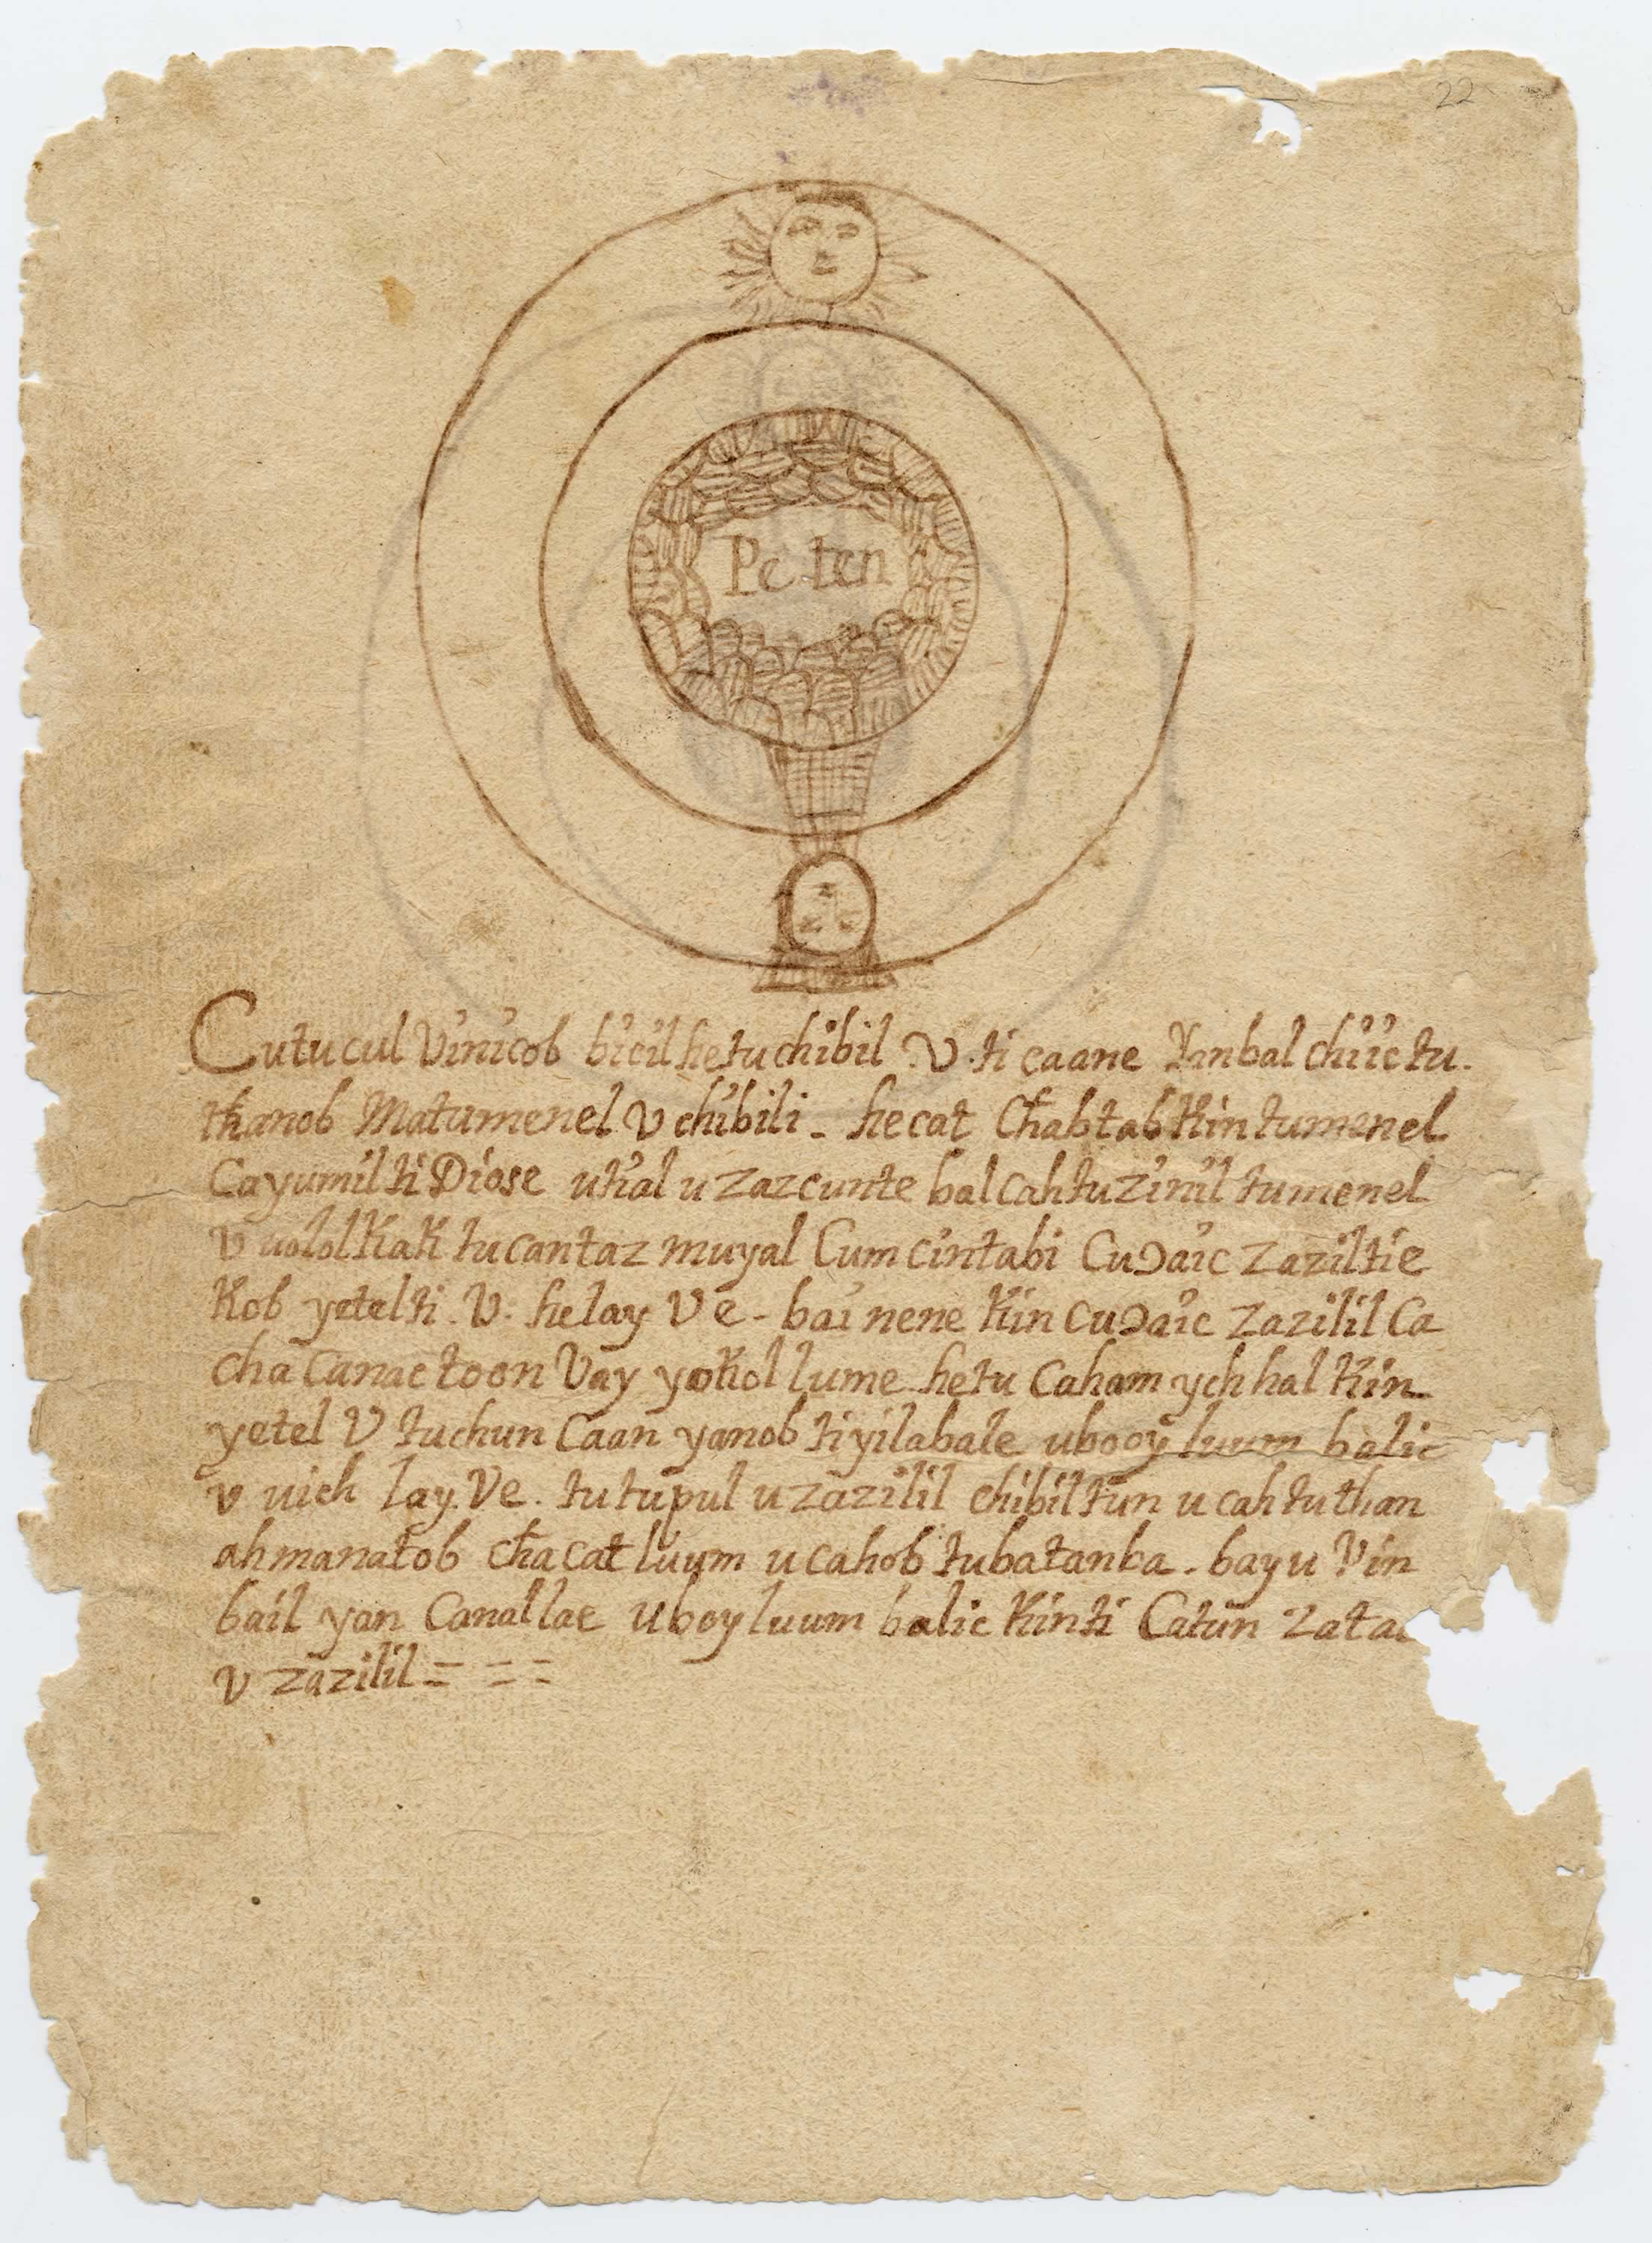 22
Peten
Cutucul Vinicob bicil he tu chibil V. ti caane Yanbal chiic tu.
thanob Matumenel V chibili - he cat Chabtab Kin tumenel
Cayumil ti Diose utial u zazcunte balcah tuzinil tumenel
V uolol KaK tu cantaz muyal Cumcintabi Cu Ɔaic Zazil tie
Kob yetel ti . V. helay V e - bai nene Kin cu Ɔaic Zazilil Ca
cha Canac toon Vay yoKol lume. hetu Caham ych hal Kin
yetel V tu chun Caan yanob ti yilabale ubooy luum balic
v uich lay. Ve. tu tupul u zazilil chibil tun u cah tu than
ahmanatob cha cat luum u cahob tubatanba. bay u Vin
bail yan Canal lae u boy luum balic Kin ti Catun Zatac
v zazilil = = =